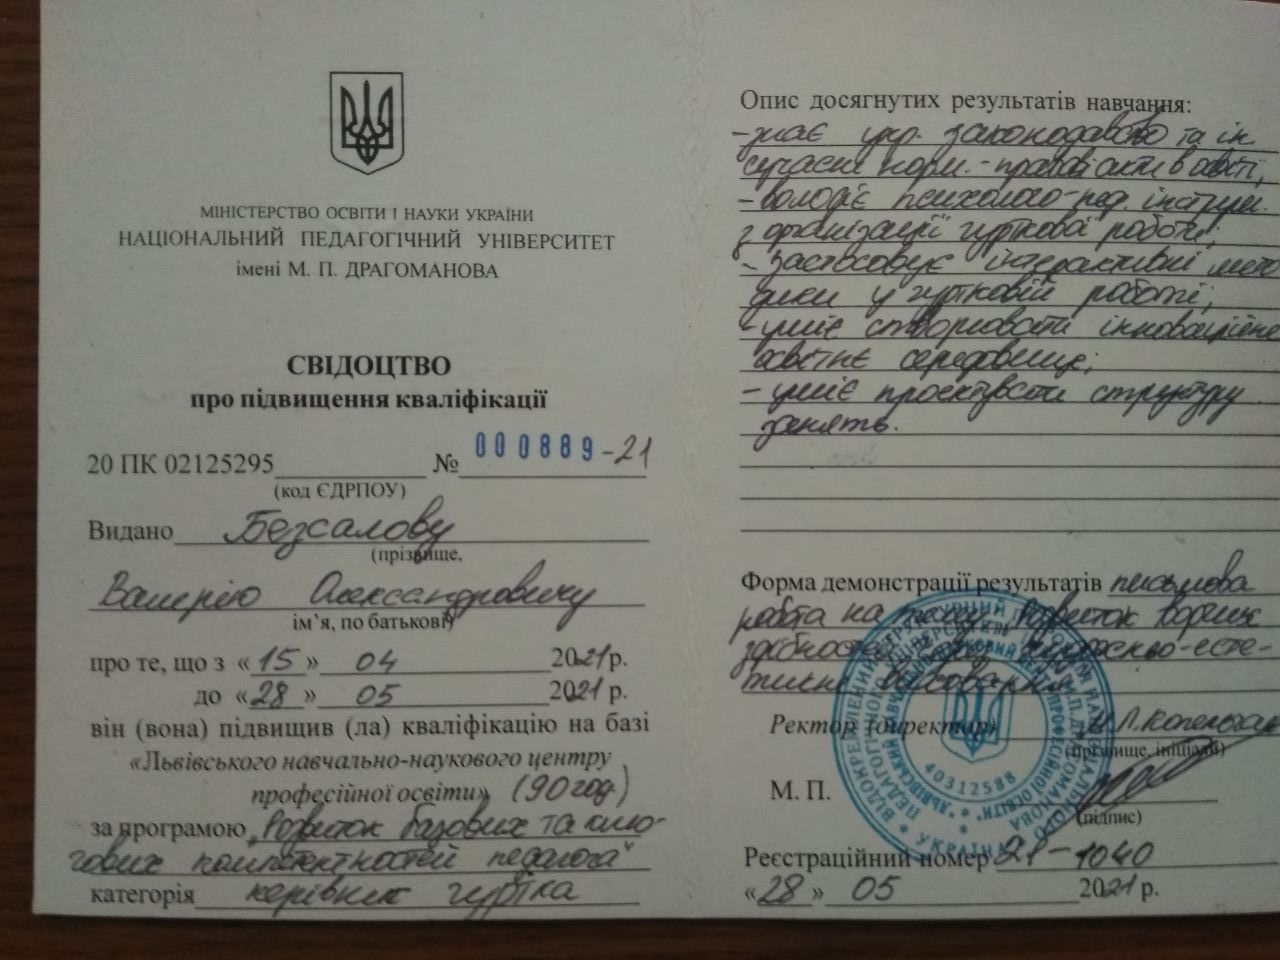 МІНІСТЕРСТВО ОСВІТИ І НАУКИ УКРАЇНИ
НАЦІОНАЛЬНИЙ ПЕДАГОГІЧНИЙ УНІВЕРСИТЕТ
імені М. П. ДРАГОМАНОВА
СВІДОЦТВО
про підвищення кваліфікації
20 ПК 02125295 № 000889-21
(код ЄДРПОУ)
Видано Безсалову
(прізвище,
Валерію Олександровичу
ім’я, по батькові)
про те, що з «15» 04 2021 р.
до «28» 05 2021 р.
він (вона) підвищив (ла) кваліфікацію на базі
«Львівського навчально-наукового центру
професійної освіти» (90 год.)
за програмою "Розвиток базових та фахо-
гових компетентностей педагога"
категорія керівник гуртка
Опис досягнутих результатів навчання:
- знає укр. законодавство та ін.
сучасні норм.-правові акти в освіті;
- володіє психолого-пед. інструм.
з організації гурткової роботи;
- застосовує інтерактивні мето
дики у гуртковій роботі;
- уміє створювати інноваційне
освітнє середовище;
- уміє проєктувати структуру
занять.
Форма демонстрації результатів письмова
робота на тему Розвиток
здібностей художньо-есте-
тичне виховання
Ректор (директор)
(прізвище, ініціали)
М. П.
(підпис)
40312588
УКРАЇНА
Реєстраційний номер 21-1040
«28» 05 2021 р.